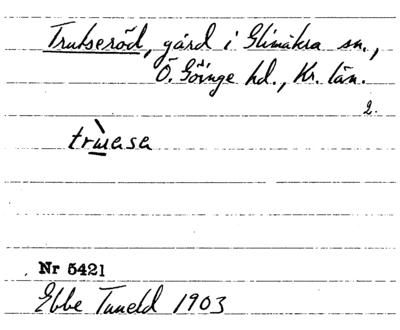 Trulseröd, gård i Glimåkra sn.,
Ö. Göinge hd., Kr. län.
2.
Nr 5421
Ebbe Tuneld 1903